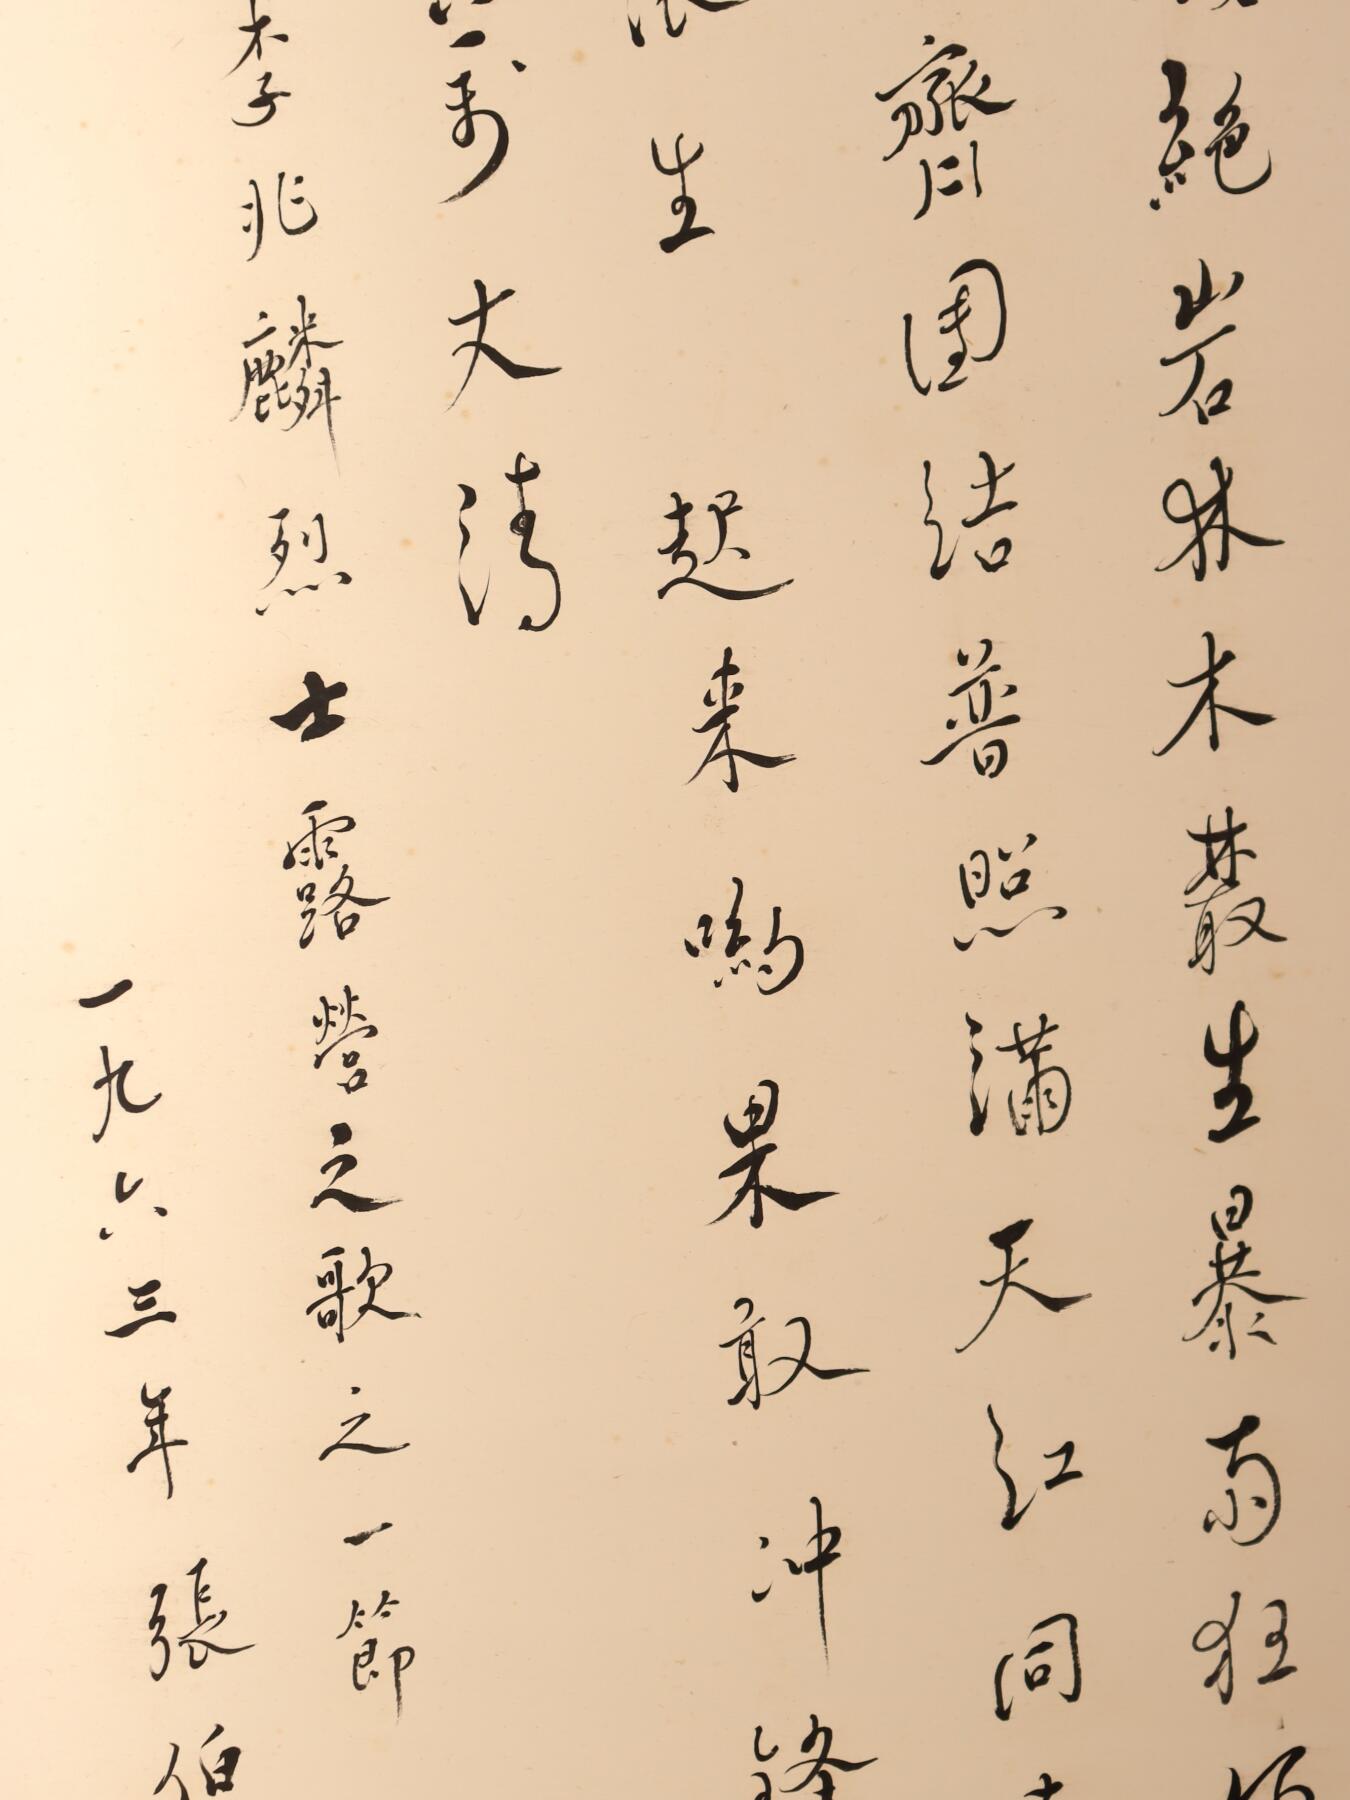 絕岩林木叢生暴雨狂
齊團結普照滿天紅同
生 起來喲果敢冲鋒
萬丈濤
李兆麟烈士露營之歌之一節
一九六三年 張伯